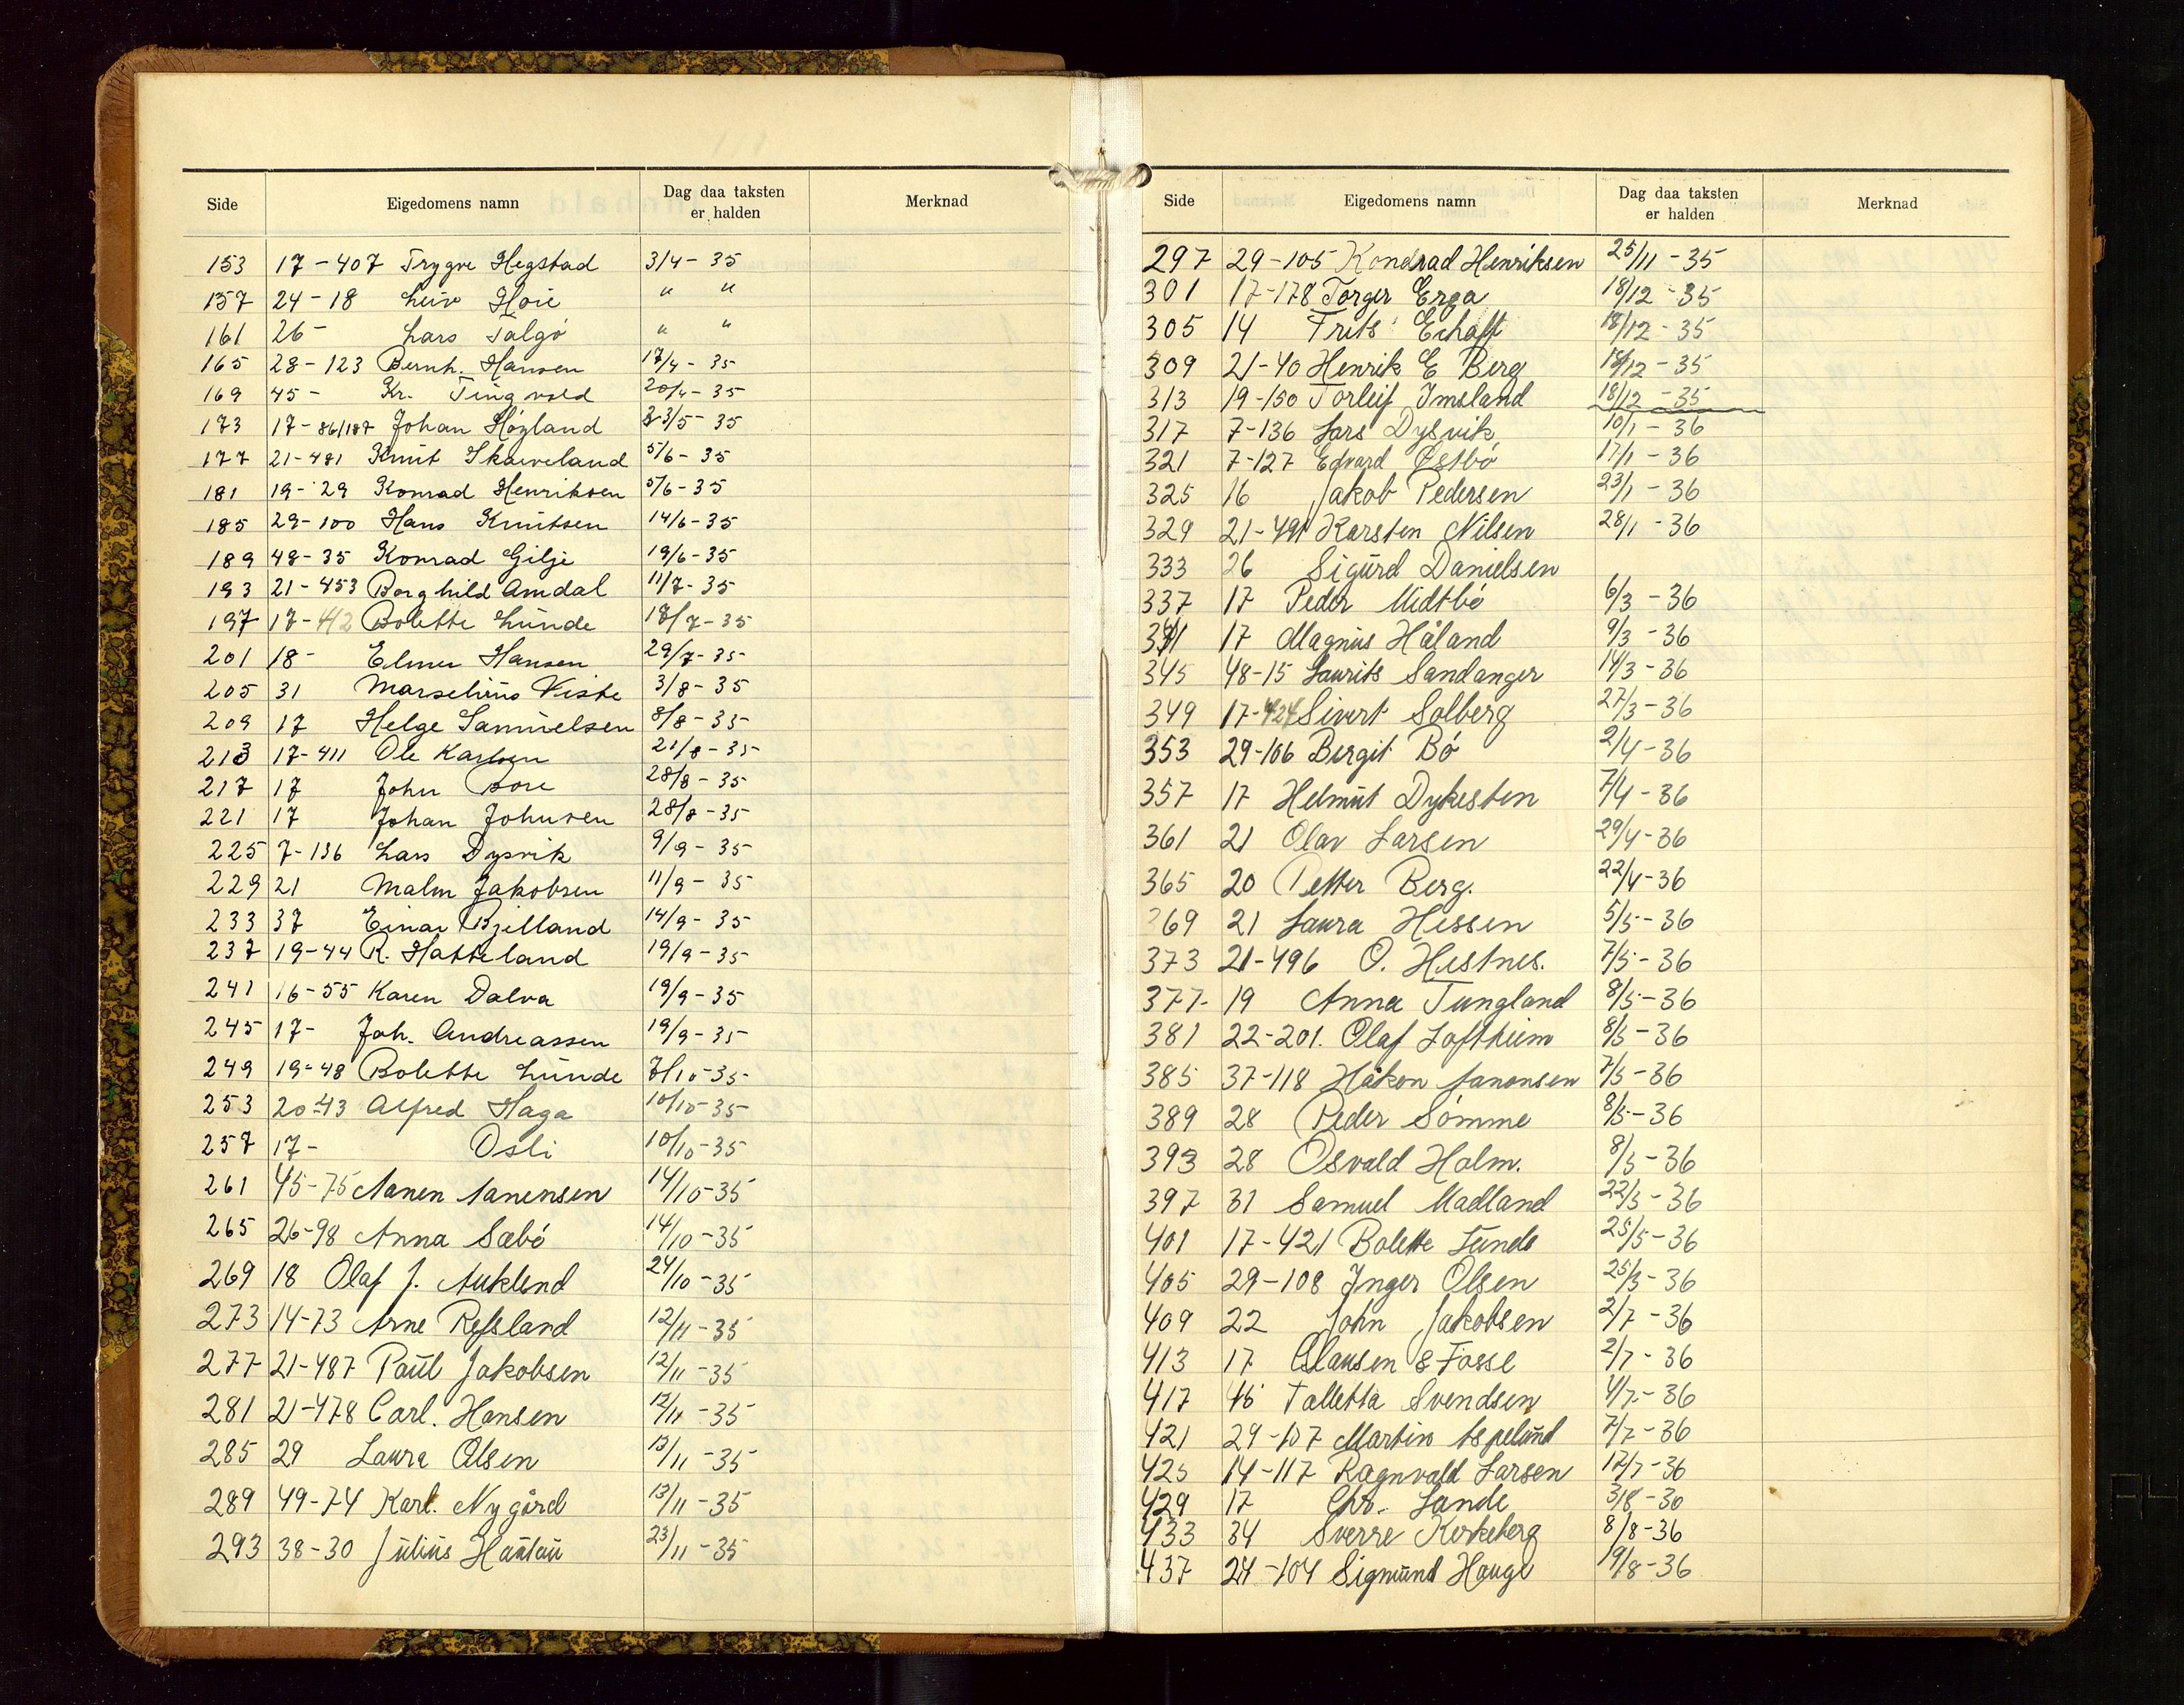 Side Eigedomens namn Dag daa taksten er halden Merknad
153 17-407 Trygve Hegstad 3/4-35
157 24-18 Leiv Hoie " "
161 26- Lars Talgö " "
165 28-123 Bernh. Hansen 17/4-35
169 45- Kr. Tingvold 20/4-35
173 17-86/187 Johan Högland 23/5-35
177 21-481 Knut Skarveland 5/6-35
181 19-29 Konrad Henriksen 5/6-35
185 29-100 Hans Knutsen 14/6-35
189 48-35 Konrad Gilje 19/6-35
193 21-453 Borghild Amdal 11/7-35
197 17-412 Bolette Lunde 18/7-35
201 18- Elmer Hansen 29/7-35
205 31 Marselius Viste 3/8-35
209 17 Helge Samuelsen 8/8-35
213 17-411 Ole Karlsen 21/8-35
217 17 John Bore 28/8-35
221 17 Johan Johnsen 28/8-35
225 7-136 Lars Dysvik 9/9-35
229 21 Malm Jakobsen 11/9-35
233 37 Einar Bjelland 14/9-35
237 19-44 R. Hatteland 19/9-35
241 16-55 Karen Dalva 19/9-35
245 17- Joh. Andreassen 19/9-35
249 19-48 Bolette Lunde 7/10-35
253 20-43 Alfred Haga 10/10-35
257 17- Osli 10/10-35
261 45-75 Aanen Aanensen 14/10-35
265 26-98 Anna Sæbö 14/10-35
269 18 Olaf J. Auklend 24/10-35
273 14-73 Arne Refsland 12/11-35
277 21-487 Paul Jakobsen 12/11-35
281 21-478 Carl. Hansen 12/11-35
285 29 Laura Olsen 13/11-35
289 49-74 Karl. Nygård 13/11-35
293 38-30 Julius Hautau 23/11-35
Side Eigedomens namn Dag daa taksten er halden Merknad
297 29-105 Kondrad Henriksen 25/11-35
301 17-178 Torger Erga 18/12-35
305 14 Frits Echoft 18/12-35
309 21-40 Henrik E Berg 18/12-35
313 19-150 Torleif Imsland 18/12-35
317 7-136 Lars Dysvik 10/1-36
321 7-127 Edvard Østbö 17/1-36
325 16 Jakob Pedersen 23/1-36
329 21-491 Karsten Nilsen 28/1-36
333 26 Sigurd Danielsen
337 17 Peder Midtbö 6/3-36
341 17 Magnus Håland 9/3-36
345 48-15 Laurits Sandanger 14/3-36
349 17-424 Sivert Solberg 27/3-36
353 29-106 Bergit Bö 2/4-36
357 17 Helmut Dykesten 7/4-36
361 21 Olav Larsen 29/4-36
365 20 Petter Berg. 22/4-36
269 21 Laura Hessen 5/5-36
373 21-496 O. Hestnes. 7/5-36
377- 19 Anna Tungland 8/5-36
381 22-201. Olaf Loftheim 8/5-36
385 37-118 Håkon Aanonsen 7/5-36
389 28 Peder Sömme 8/5-36
393 28 Osvald Holm. 8/5-36
397 31 Samuel Madland 22/5-36
401 17-421 Bolette Lunde 25/5-36
405 29-108 Inger Olsen 25/5-36
409 22 John Jakobsen 2/7-36
413 17 Clausen & Fosse 2/7-36
417 45 Talletta Svendsen 4/7-36
421 29-107 Martin Espelund 7/7-36
425 14-117 Ragnvald Larsen 17/7-36
429 17 Chr. Lande 3/8-30
433 34 Sverre Kirkeberg 8/8-36
437 24-104 Sigmund Hauge 19/8-36